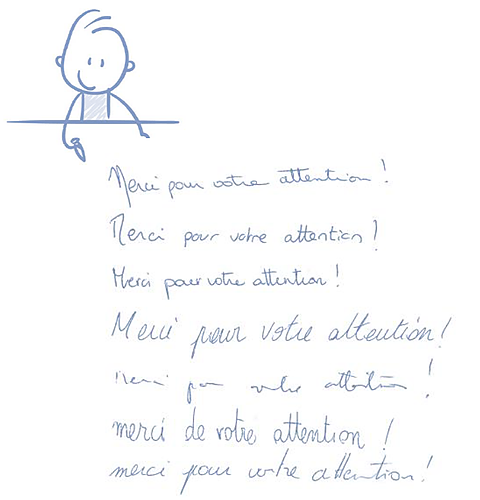 Merci pour votre attention !
Merci pour votre attention !
Merci pour votre attention !
Merci pour votre attention !
Merci pour votre attention !
merci de votre attention !
merci pour votre attention !